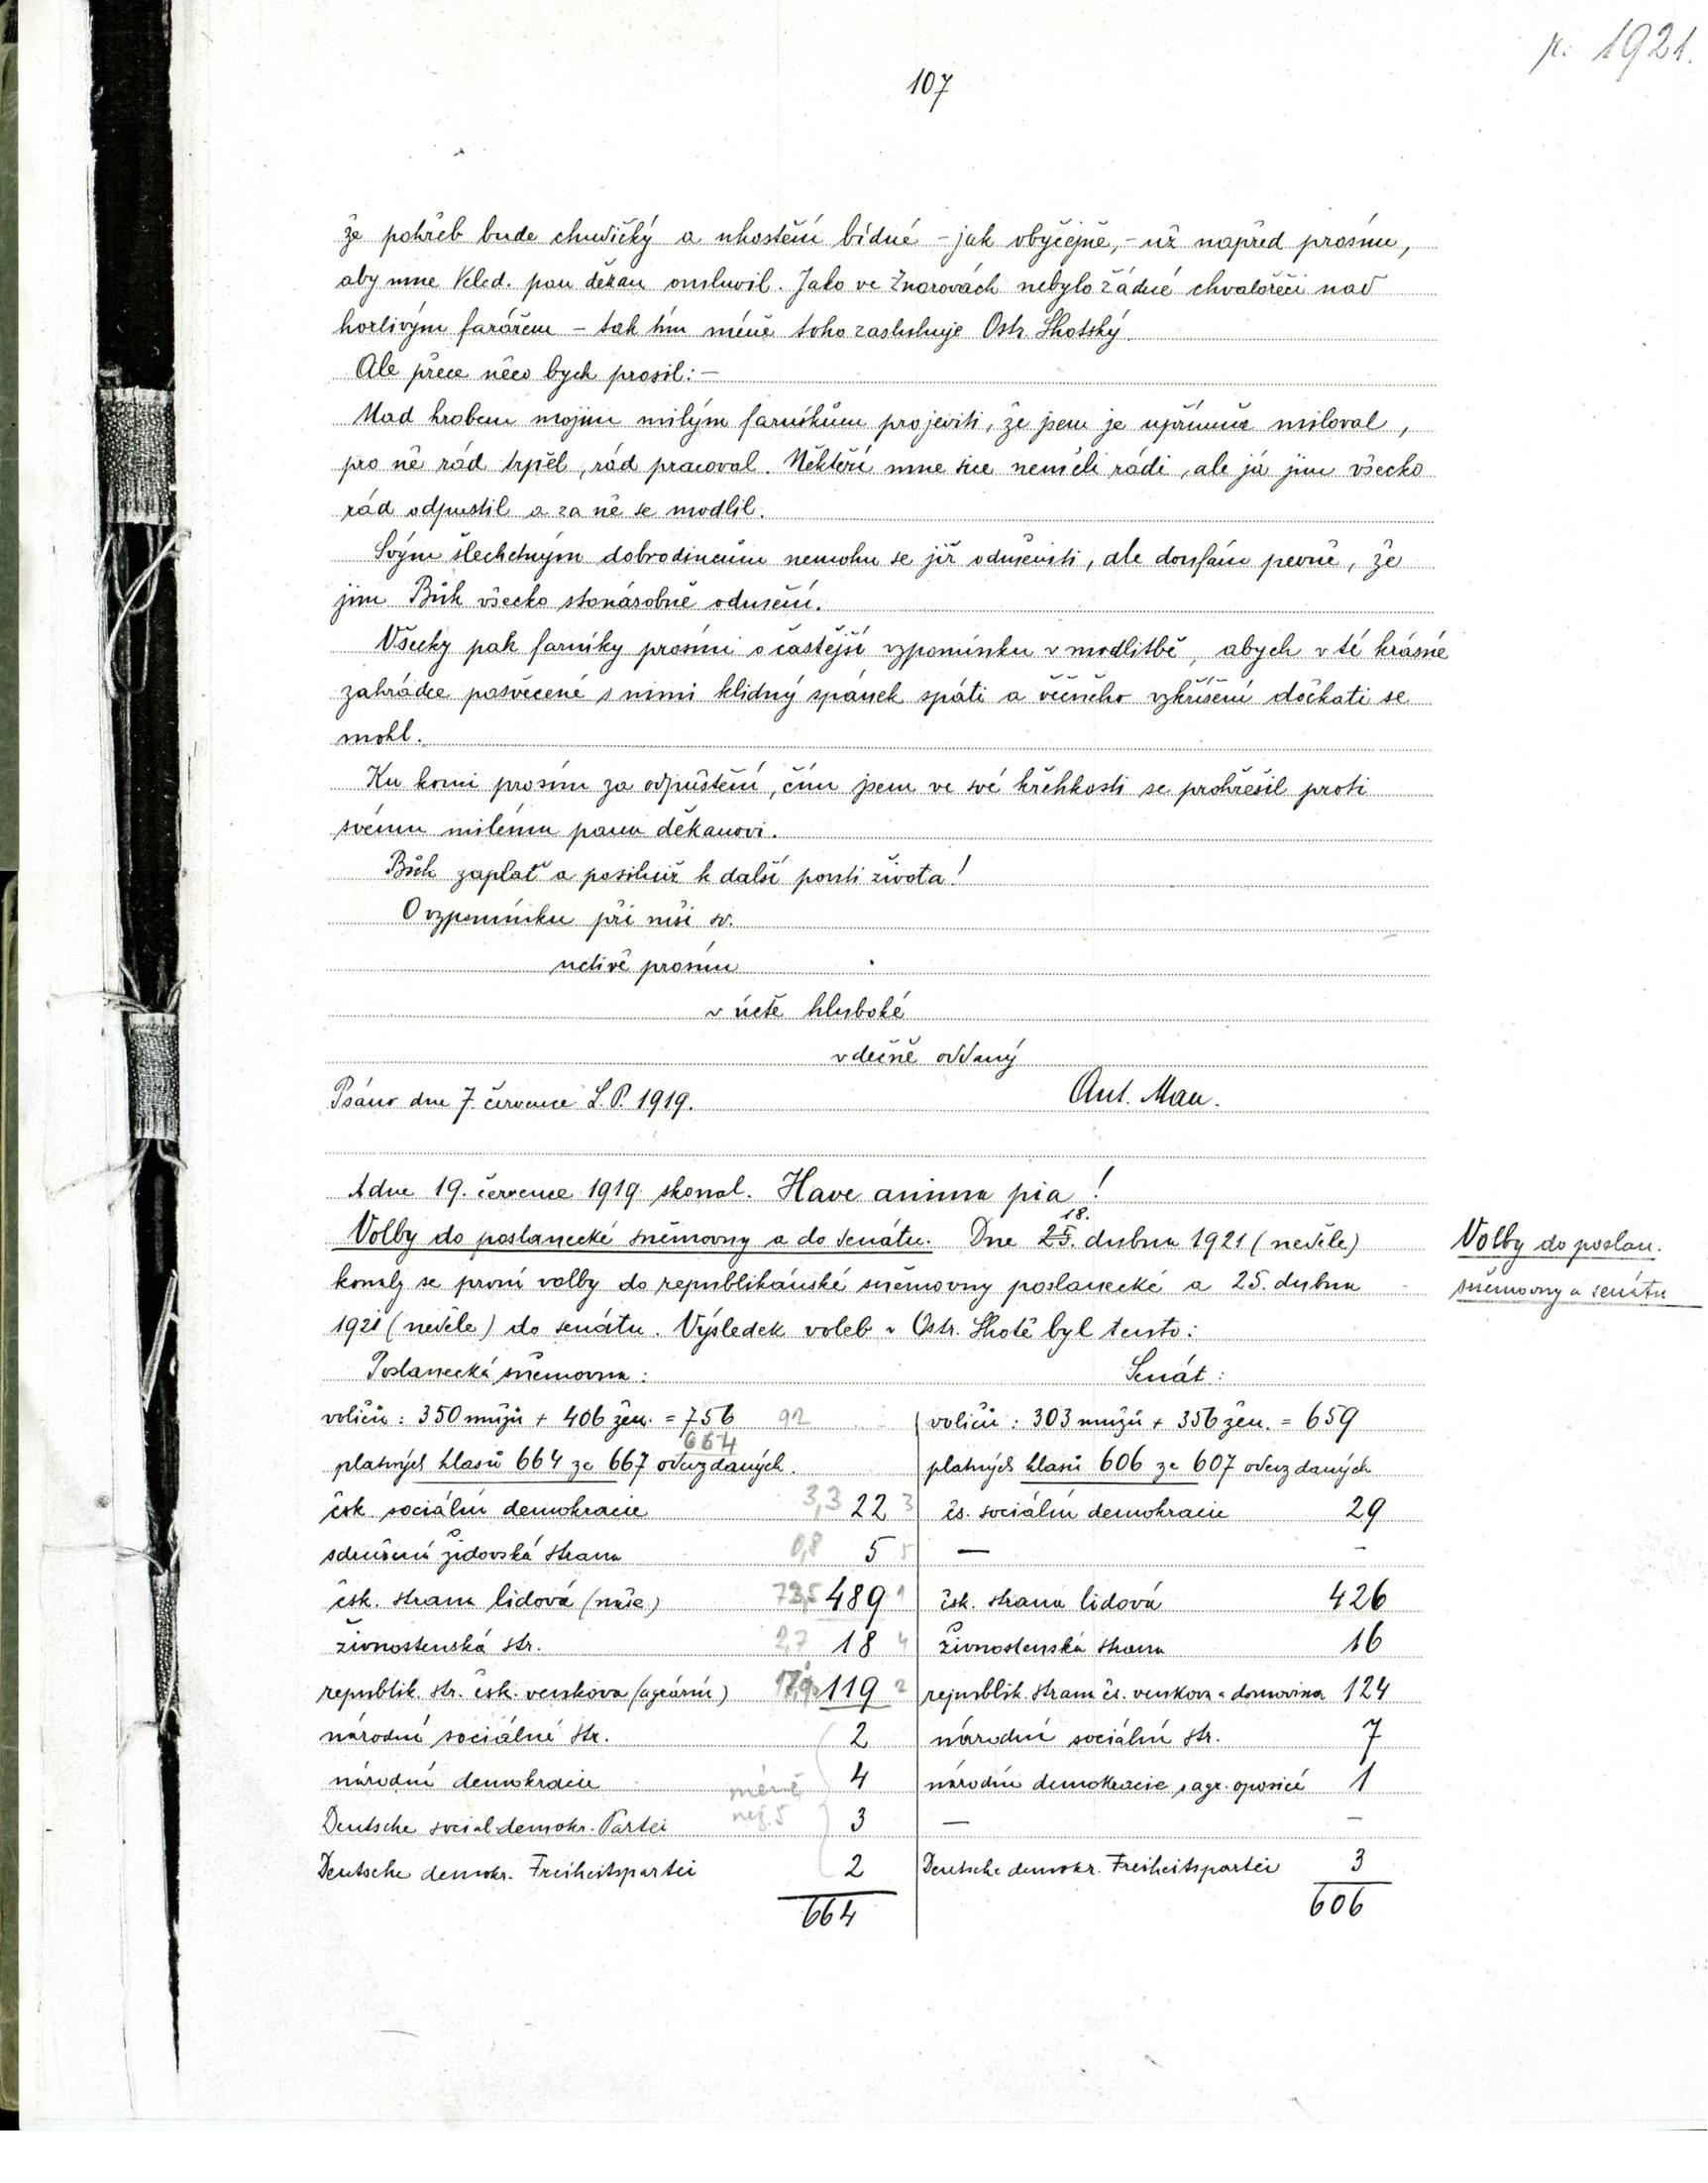 r. 1921.
107
že pohřeb bude chudičký a uhostění bídné – jak obyčejně, – už napřed prosím,
aby mne Veled. pan děkan omluvil. Jako ve Znorovách nebylo žádné chvalořeči nad
horlivým farářem – tak tím méně toho zasluhuje Ostr. Lhotský.
Ale přece něco bych prosil: –
Nad hrobem mojim milým farníkům projeviti, že jsem je upřímně miloval,
pro ně rád trpěl, rád pracoval. Někteří mne sice neměli rádi, ale já jim všecko
rád odpustil a za ně se modlil.
Svým šlechetným dobrodincům nemohu se již odměniti, ale doufám pevně, že
jim Bůh všecko stonásobně odmění.
Všecky pak farníky prosím o častější vzpomínku v modlitbě, abych v té krásné
zahrádce posvěcené s nimi klidný spánek spáti a věčného vzkříšení dočkati se
mohl.
Ku konci prosím za odpuštění, čím jsem ve své křehkosti se prohřešil proti
svému milému panu děkanovi.
Bůh zaplať a posilniž k další pouti života!
O vzpomínku při mši sv.
uctivě prosím
v úctě hluboké
vděčně oddaný
Psáno dne 7. července L.P. 1919. Ant. Man.
A dne 19. července 1919 skonal. Have anima pia!
18.
Volby do poslanecké sněmovny a do senátu. Dne 25. dubna 1921 (neděle)
Volby do poslan.
konaly se první volby do republikánské sněmovny poslanecké a 25. dubna
sněmovny a senátu
1921 (neděle) do senátu. Výsledek voleb v Ostr. Lhotě byl tento:
Poslanecká sněmovna: Senát:
voličů: 350 mužů + 406 žen. = 756 92 voličů: 303 mužů + 356 žen. = 659
664
platných hlasů 664 ze 667 odevzdaných. platných hlasů 606 ze 607 odevzdaných
čsk. sociální demokracie 3,3 22 3 čs. sociální demokracie 29
sdružená židovská strana 0,8 5 5 — –
čsk. strana lidová (naše) 73,5 489 1 čsk. strana lidová 426
živnostenská str. 2,7 18 4 živnostenská strana 16
republik. str. čsk. venkova (agrární) 17,9 119 2 republik. strana čs. venkova a domovina 124
národní sociálně str. 2 národní sociální str. 7
národní demokracie 4 národní demokracie s agr. oposicí 1
méně
než 5
Deutsche social demokr. Partei 3 — –
Deutsche demokr. Freiheitspartei 2 Deutsche demokr. Freiheitspartei 3
664 606